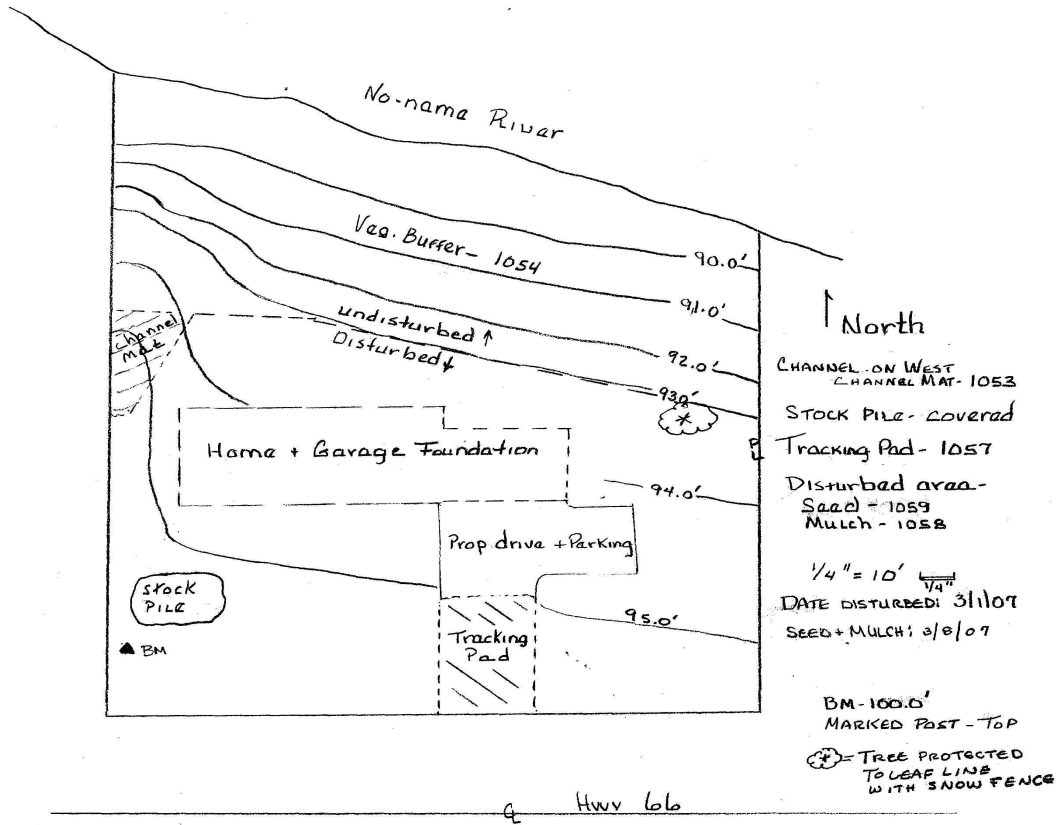 No-name River
Veg. Buffer- 1054
90.0'
91.0'
undisturbed ↑
Disturbed ↓
92.0'
93.0'
Channel
Mat
Home + Garage Foundation
94.0'
Prop. drive + Parking
Stock
Pile
95.0'
Tracking
Pad
BM
North
CHANNEL ON WEST
CHANNEL MAT- 1053
STOCK PILE- covered
PL
Tracking Pad- 1057
Disturbed area-
Seed - 1059
Mulch - 1058
1/4" = 10'
1/4"
DATE DISTURBED: 3/1/07
SEED + MULCH: 3/8/07
BM-100.0'
MARKED POST - TOP
= TREE PROTECTED
TO LEAF LINE
WITH SNOW FENCE
CL Hwy 66